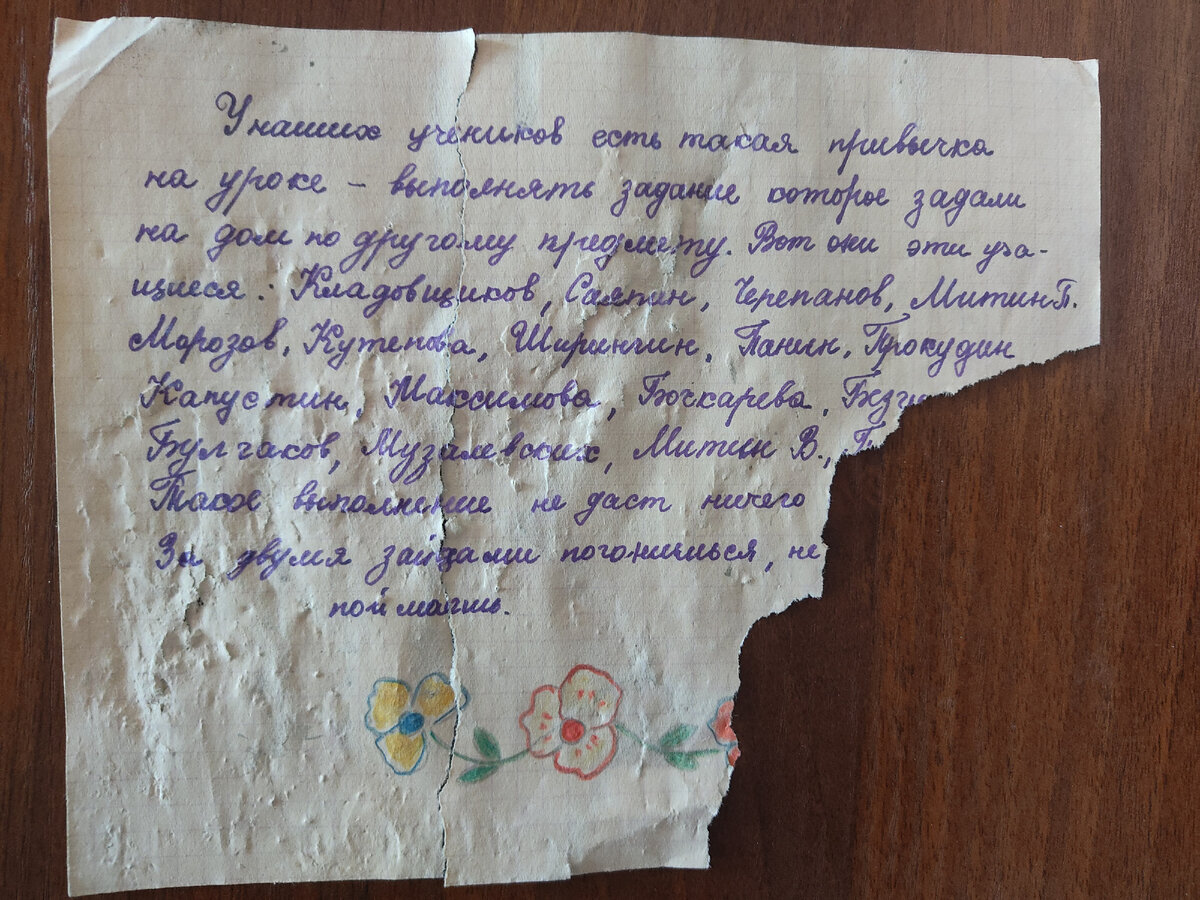 У наших учеников есть такая привычка
на уроке – выполнять задание которое задали
на дом по другому предмету. Вот они эти уча-
щиеся: Кладовщиков, Саяпин, Черепанов, Митин П.
Морозов, Кутепова, Ширинчин, Панин, Прокудин
Капустин, Максимова, Бочкарева,
Булгаков, Музалевских, Митин В.,
Такое выполнение не даст ничего
За двумя зайцами погонишься, не
поймаешь.